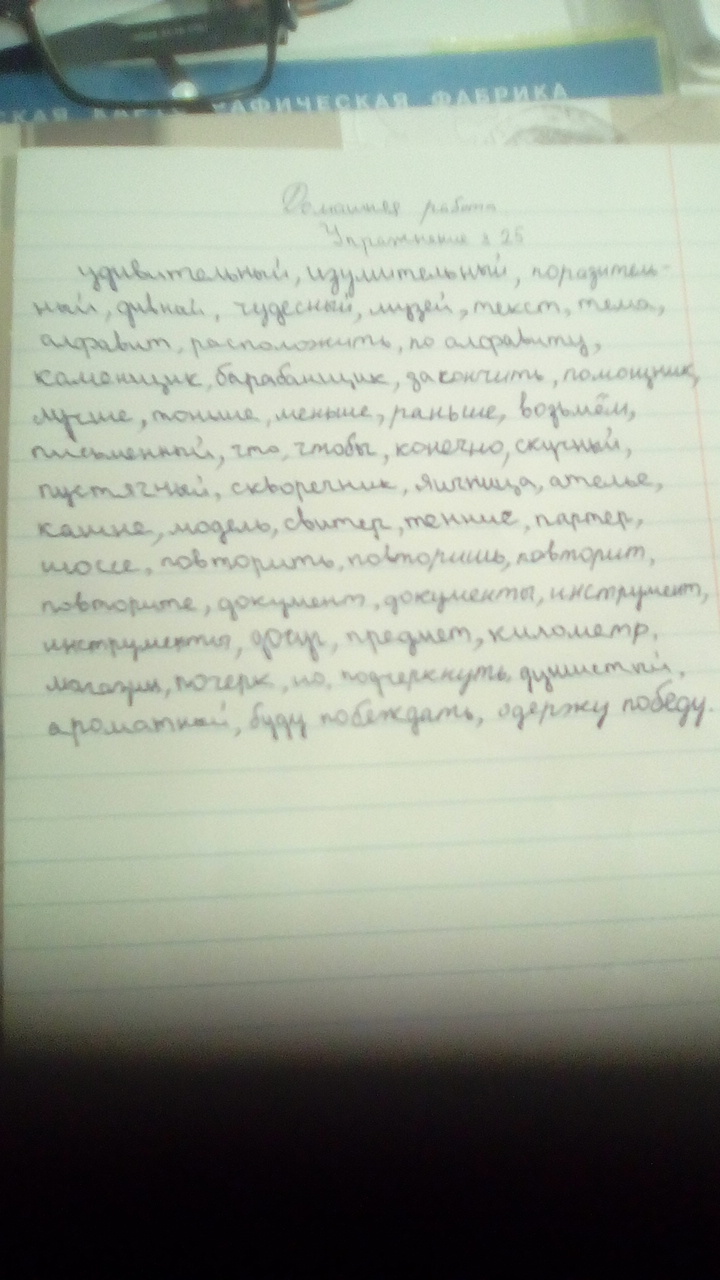 СКАЯ КАРТ АФИЧЕСКАЯ ФАБРИКА
Домашняя работа
Упражнение 25
удивительный, изумительный, поразитель-
ный, дивный, чудесный, музей, текст, тема,
алфавит, расположить, по алфавиту,
каменщик, барабанщик, закончить, помощник,
лучше, тоньше, меньше, раньше, возьмём,
письменный, что, чтобы, конечно, скучный,
пустячный, скворечник, яичница, ателье,
кашне, модель, свитер, теннис, партер,
шоссе, повторить, повторишь, повторит,
повторите, документ, документы, инструмент,
инструменты, досуг, предмет, километр,
магазин, почерк, но, подчеркнуть, душистый,
ароматный, буду побеждать, одержу победу.